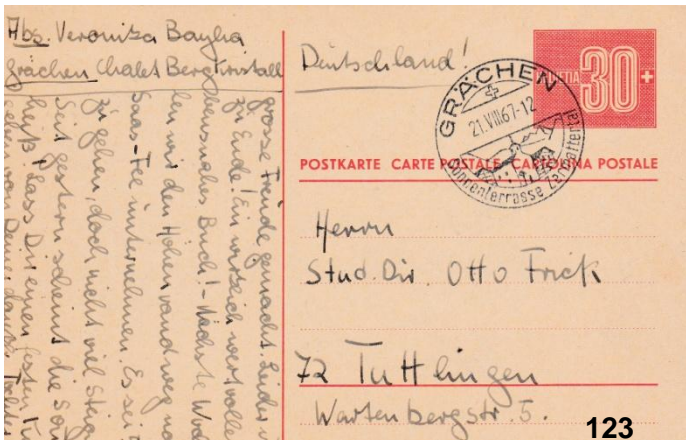 Abs. Veronika Bayha
Grächen Chalet Bergkristall
grosse Freude gemacht. Leider
zu Ende! Ein wirklich wertvolles
Buch! - Nächste Woche
len wir den Höhenwanderweg
Saas-Fee unternehmen. Es sei
zu gehen, doch nicht viel
Seit gestern scheint die
heiß! Dass Du einen
Deutschland!
HELVETIA 30+
GRÄCHEN
21.VIII.67-12
Sonnenterrasse Zermattertal
POSTKARTE CARTE POSTALE CARTOLINA POSTALE
Herrn
Stud. Dir. Otto Frick
72 Tuttlingen
Wartenbergstr. 5.
123